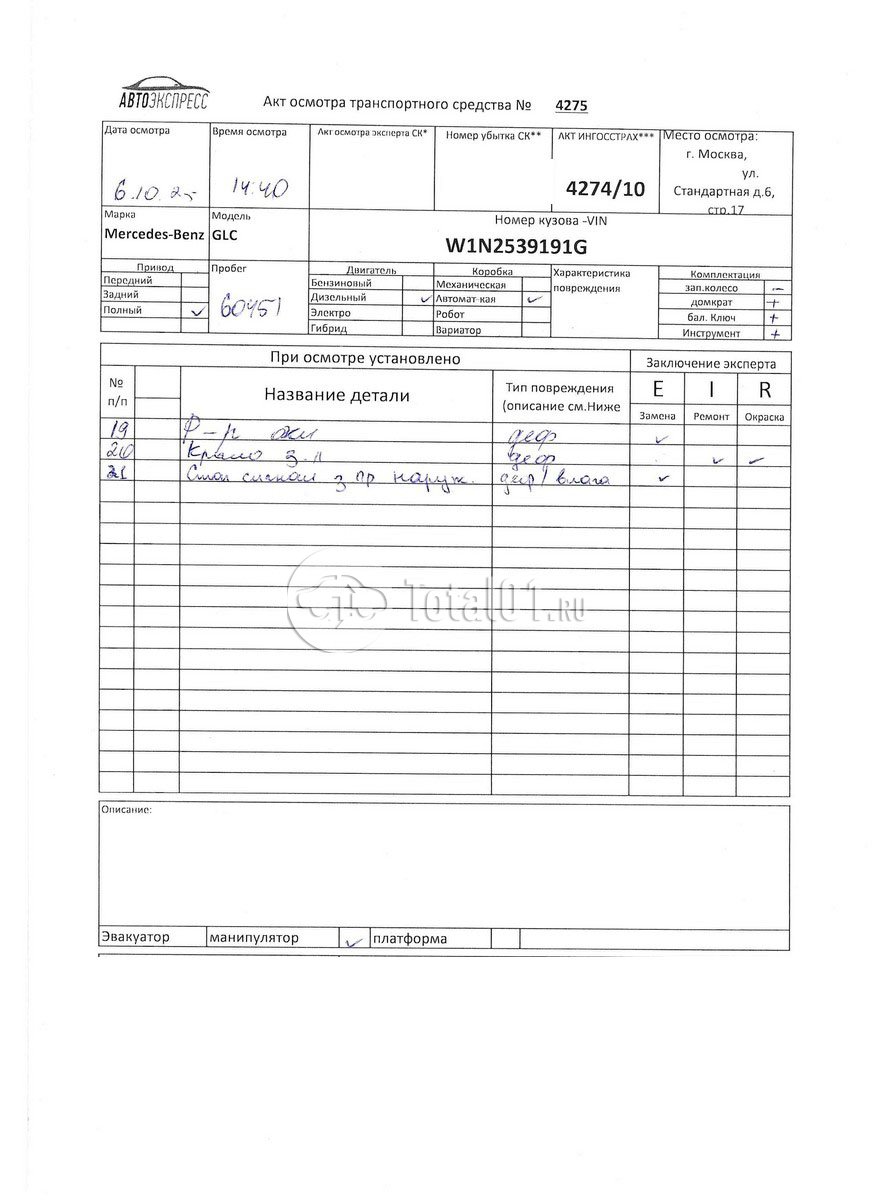 АВТОЭКСПРЕСС
Акт осмотра транспортного средства № 4275
Дата осмотра Время осмотра Акт осмотра эксперта СК* Номер убытка СК** АКТ ИНГОССТРАХ*** Место осмотра:
г. Москва,
ул.
6.10.25 14:40 4274/10 Стандартная д.6,
стр.17
Марка Модель Номер кузова -VIN
Mercedes-Benz GLC W1N2539191G
Привод Пробег Двигатель Коробка Характеристика Комплектация
Передний Бензиновый Механическая повреждения зап.колесо –
Задний Дизельный ✓ Автомат-кая ✓ домкрат +
Полный ✓ 60451 Электро Робот бал. Ключ +
Гибрид Вариатор Инструмент +
При осмотре установлено Заключение эксперта
№ п/п Название детали Тип повреждения E I R
(описание см.Ниже Замена Ремонт Окраска
19 деф ✓
20 Крыло з.л деф ✓ ✓
21 Стоп сигнал з пр наруж. деф/влага ✓
Total01.RU
Описание:
Эвакуатор манипулятор ✓ платформа